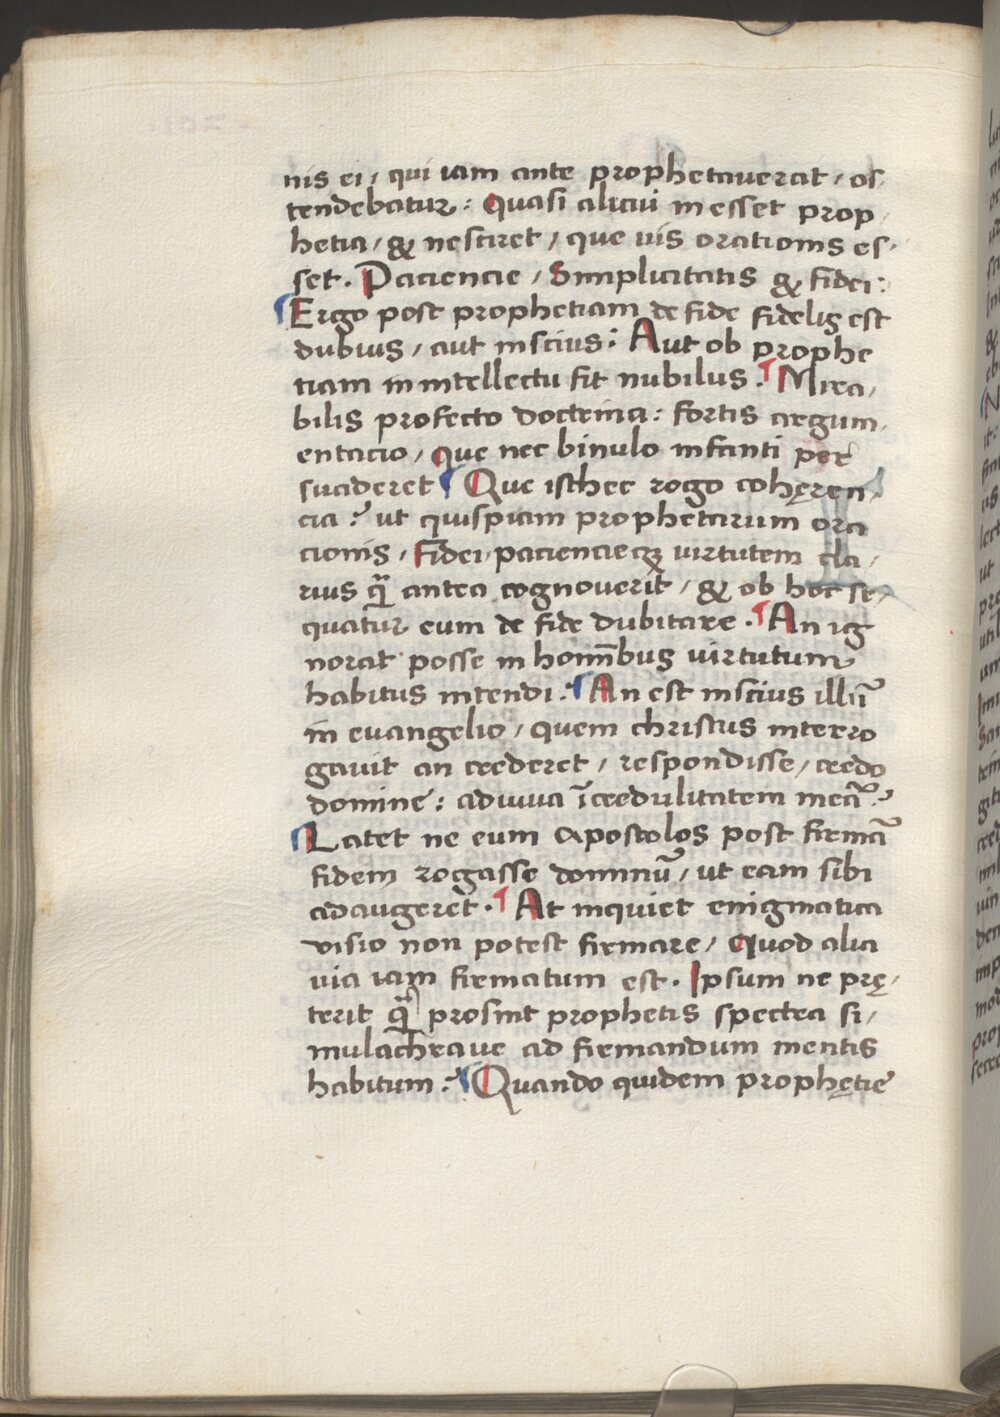 nis ei / qui iam ante prophetaverat / os-
tendebatur : Quasi alicui inesset prop-
hetia / & nesciret / que uis orationis es-
set . Paciencie / Simplicitatis & fidei :
¶ Ergo post prophetiam de fide fidelis est
dubius / aut inscius : Aut ob prophe
tiam in intellectu fit nubilus . ¶ Mira-
bilis profecto doctrina : fortis argum-
entacio / Que nec binulo infanti per
suaderet ¶ Que isthec rogo cohęren-
cia ? ut quispiam prophetarum ora
cionis / Fidei / paciencieqꝫ virtutem cla-
rius qͣ̄ antea cognoverit / & ob hoc se-
quatur eum de fide dubitare . ¶ An ig
norat posse in homībus virtutum
habitus intendi : ¶ An est inscius illū
in evangelio / quem christus interro
gavit an crederet / respondisse / credo
domine : adiuua īcredulitatem meā ?
¶ Latet ne eum Apostolos post firmā
fidem rogasse dominū / ut eam sibi
adaugeret . ¶ At inquiet enigmatica
visio non potest firmare / Quod alia
via iam firmatum est . Ipsum ne prę-
terit qͣ̄ prosint prophetis spectra si-
mulachraue ad firmandum mentis
habitum ? ¶ Quando quidem prophętie